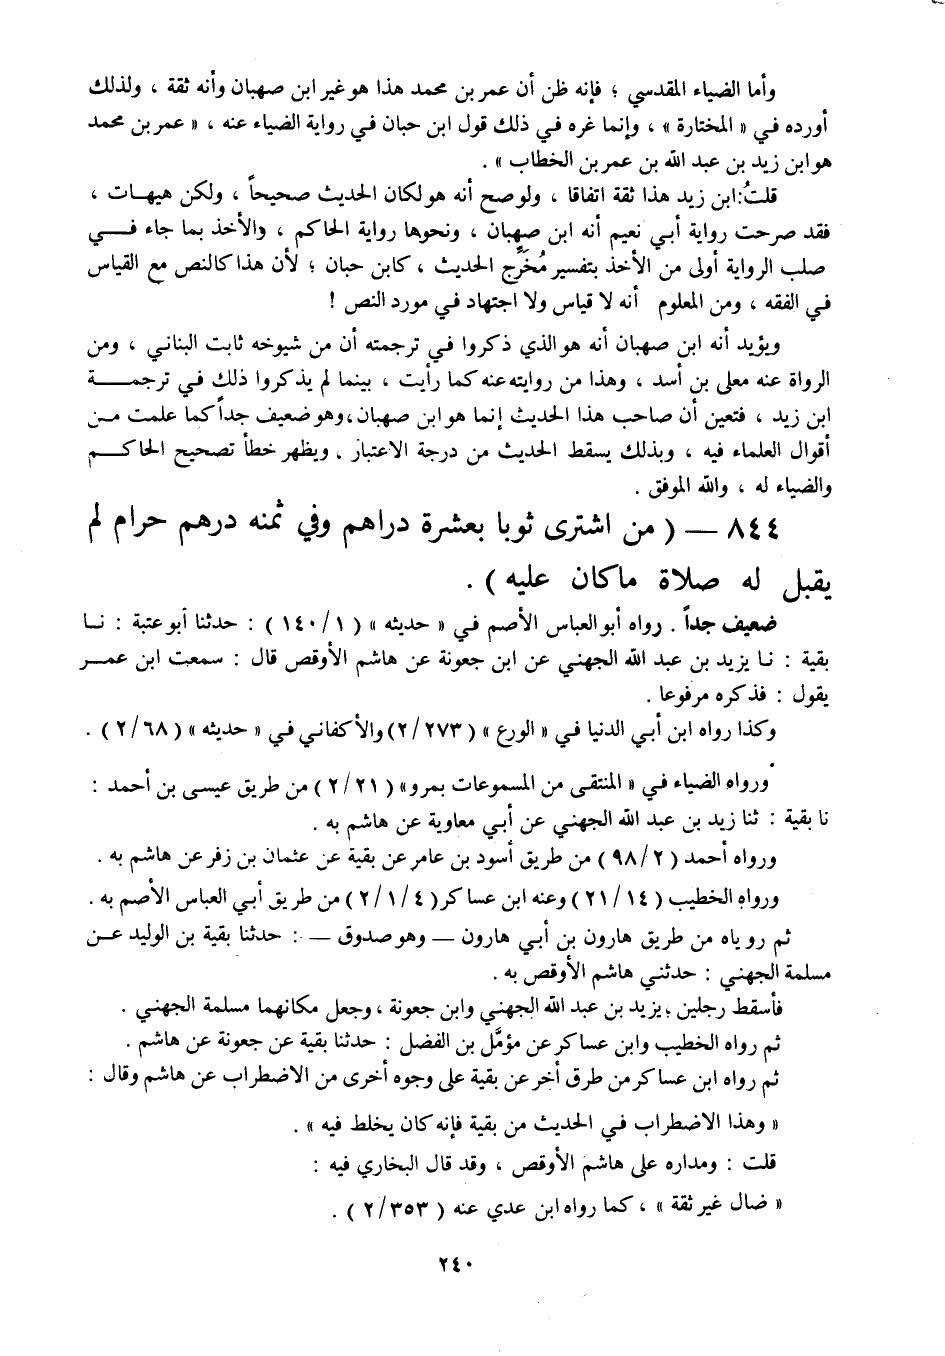 وأما الضياء المقدسي ؛ فإنه ظن أن عمر بن محمد هذا هو غير ابن صهبان وأنه ثقة ، ولذلك
أورده في « المختارة » ، وإنما غره في ذلك قول ابن حبان في رواية الضياء عنه ، « عمر بن محمد
هو ابن زيد بن عبد الله بن عمر بن الخطاب » .
قلتُ: ابن زيد هذا ثقة اتفاقا ، ولو صح أنه هو لكان الحديث صحيحاً ، ولكن هيهات ،
فقد صرحت رواية أبي نعيم أنه ابن صهبان ، ونحوها رواية الحاكم ، والأخذ بما جاء في
صلب الرواية أولى من الأخذ بتفسير مُخَرِّج الحديث ، كابن حبان ؛ لأن هذا كالنص مع القياس
في الفقه ، ومن المعلوم أنه لا قياس ولا اجتهاد في مورد النص !
ويؤيد أنه ابن صهبان أنه هو الذي ذكروا في ترجمته أن من شيوخه ثابت البناني ، ومن
الرواة عنه معلى بن أسد ، وهذا من روايته عنه كما رأيت ، بينما لم يذكروا ذلك في ترجمة
ابن زيد ، فتعين أن صاحب هذا الحديث إنما هو ابن صهبان ، وهو ضعيف جداً كما علمت من
أقوال العلماء فيه ، وبذلك يسقط الحديث من درجة الاعتبار . ويظهر خطأ تصحيح الحاكم
والضياء له ، والله الموفق .
٨٤٤ — ( من اشترى ثوبا بعشرة دراهم وفي ثمنه درهم حرام لم
يقبل له صلاة ماكان عليه ) .
ضعيف جداً . رواه أبو العباس الأصم في « حديثه » ( ١/ ١٤٠ ) : حدثنا أبو عتبة : نا
بقية : نا يزيد بن عبد الله الجهني عن ابن جعونة عن هاشم الأوقص قال : سمعت ابن عمر
يقول : فذكره مرفوعا .
وكذا رواه ابن أبي الدنيا في « الورع » (٢/٢٧٣) والأكفاني في « حديثه » (٢/٦٨ ) .
ورواه الضياء في « المنتقى من المسموعات بمرو» (٢/٢١ ) من طريق عيسى بن أحمد :
نا بقية : ثنا زيد بن عبد الله الجهني عن أبي معاوية عن هاشم به .
ورواه أحمد ( ٩٨/٢ ) من طريق أسود بن عامر عن بقية عن عثمان بن زفر عن هاشم به .
ورواه الخطيب ( ٢١/١٤ ) وعنه ابن عساكر ( ٢/١/٤ ) من طريق أبي العباس الأصم به .
ثم روياه من طريق هارون بن أبي هارون — وهو صدوق — : حدثنا بقية بن الوليد عن
مسلمة الجهني : حدثني هاشم الأوقص به .
فأسقط رجلين ؛ يزيد بن عبد الله الجهني وابن جعونة ، وجعل مكانهما مسلمة الجهني .
ثم رواه الخطيب وابن عساكر عن مؤمَّل بن الفضل : حدثنا بقية عن جعونة عن هاشم .
ثم رواه ابن عساكر من طرق أخر عن بقية على وجوه أخرى من الاضطراب عن هاشم وقال :
« وهذا الاضطراب في الحديث من بقية فإنه كان يخلط فيه » .
قلت : ومداره على هاشم الأوقص ، وقد قال البخاري فيه :
« ضال غير ثقة » ، كما رواه ابن عدي عنه ( ٢/٣٥٣ ) .
٢٤٠